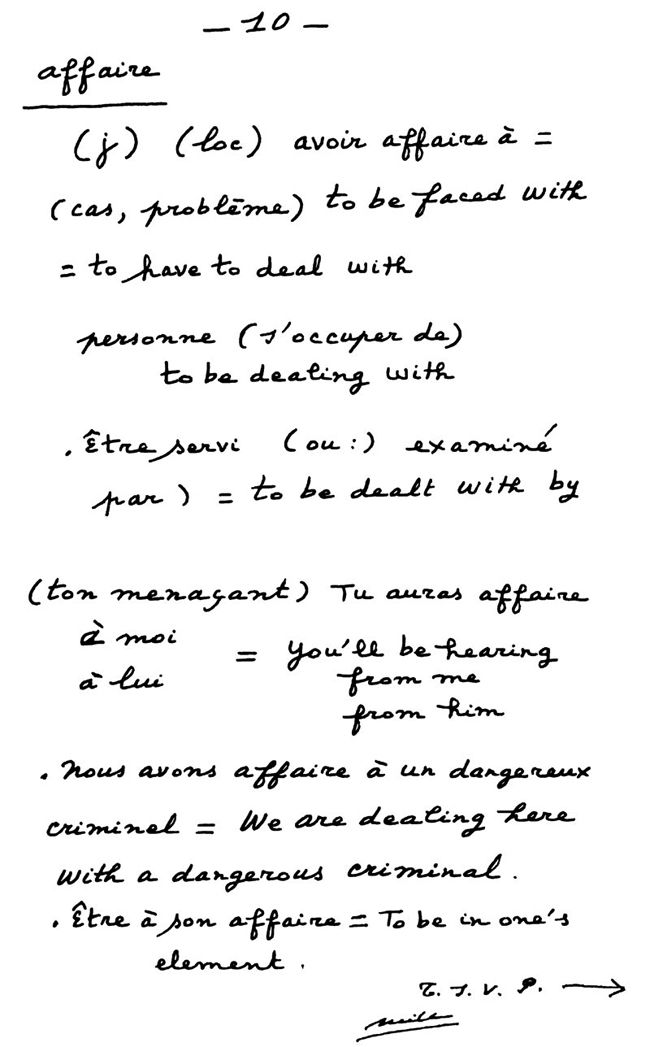 – 10 –
affaire
(j) (loc) avoir affaire à =
(cas, problème) to be faced with
= to have to deal with
personne (s'occuper de)
to be dealing with
. Être servi (ou:) examiné
par) = to be dealt with by
(ton menaçant) Tu auras affaire
à moi = You'll be hearing
à lui from me
from him
. Nous avons affaire à un dangereux
criminel = We are dealing here
with a dangerous criminal.
. Être à son affaire = To be in one's
element.
T. S. V. P. →